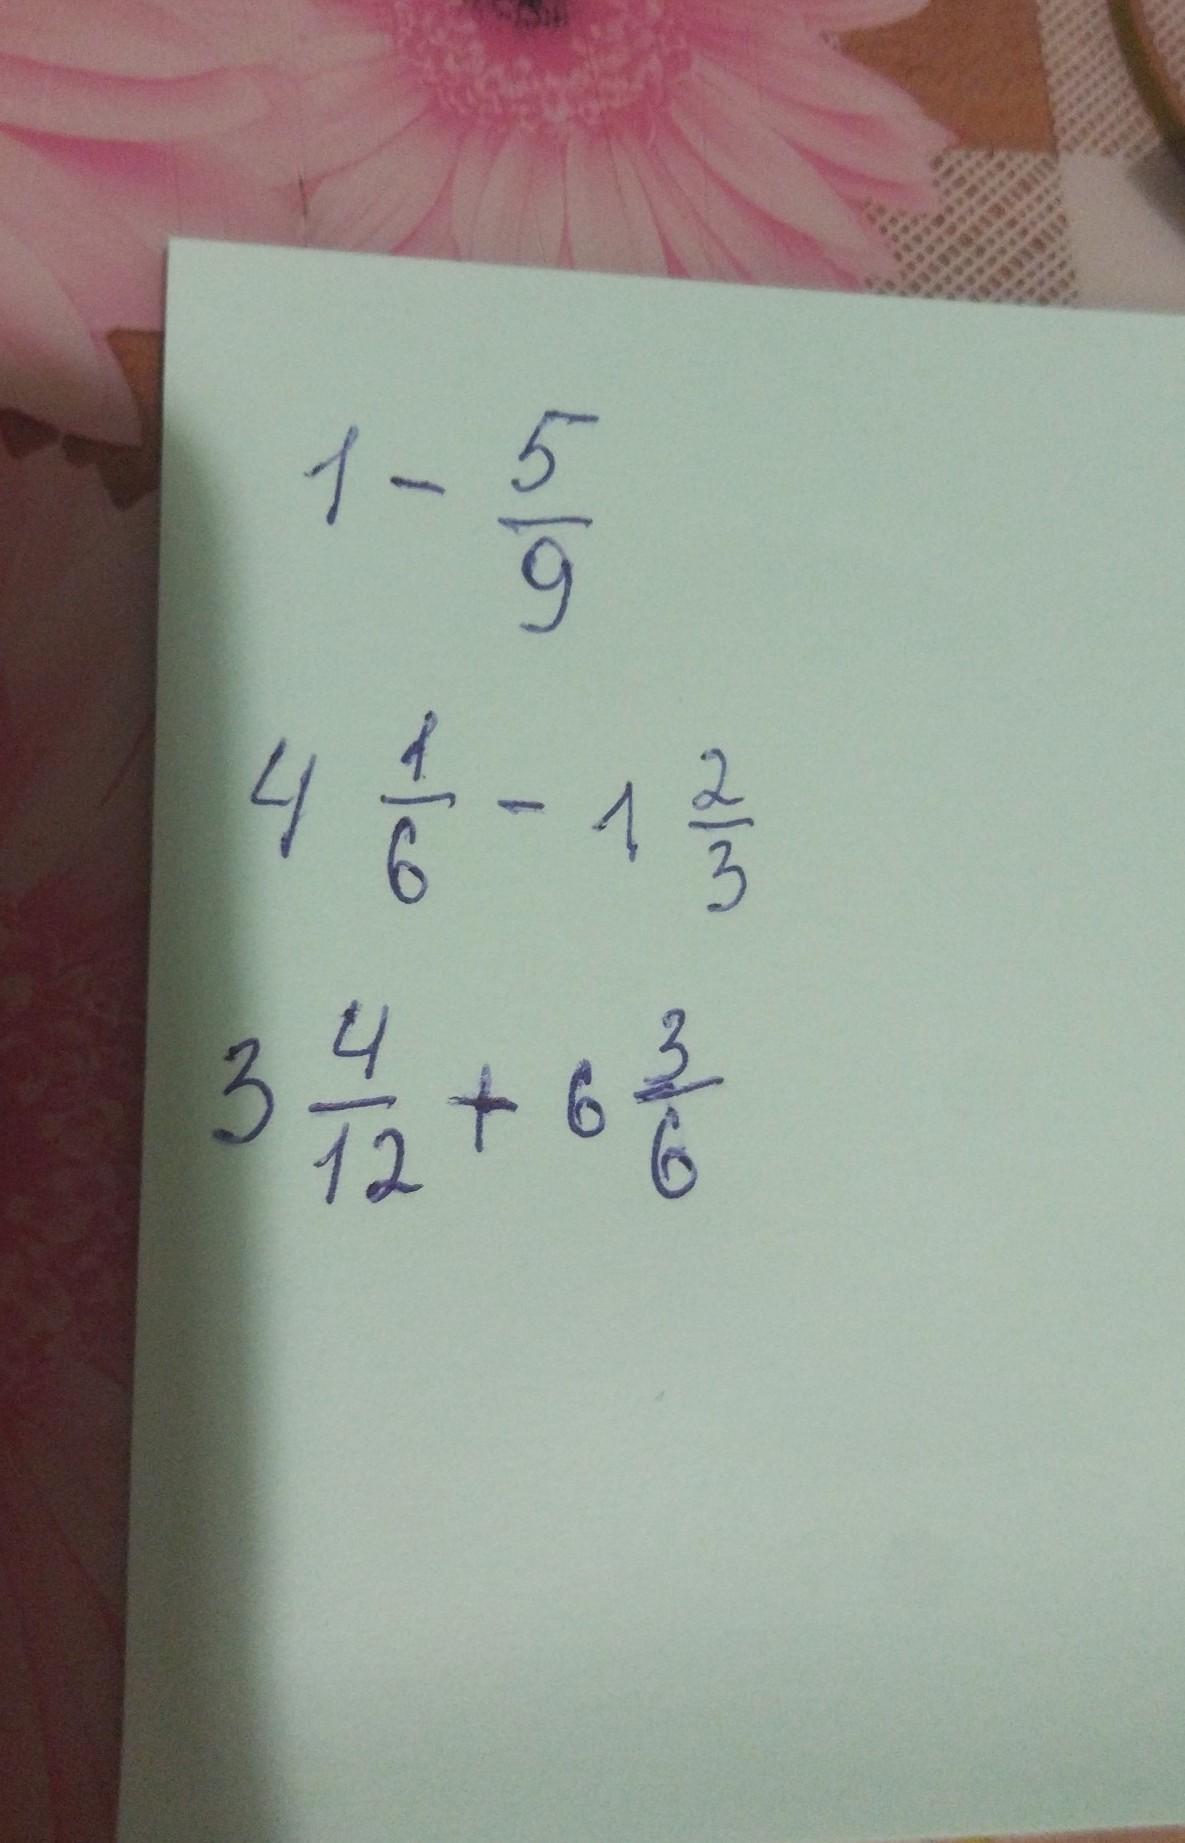 1 - 5/9
4 1/6 - 1 2/3
3 4/12 + 6 3/6